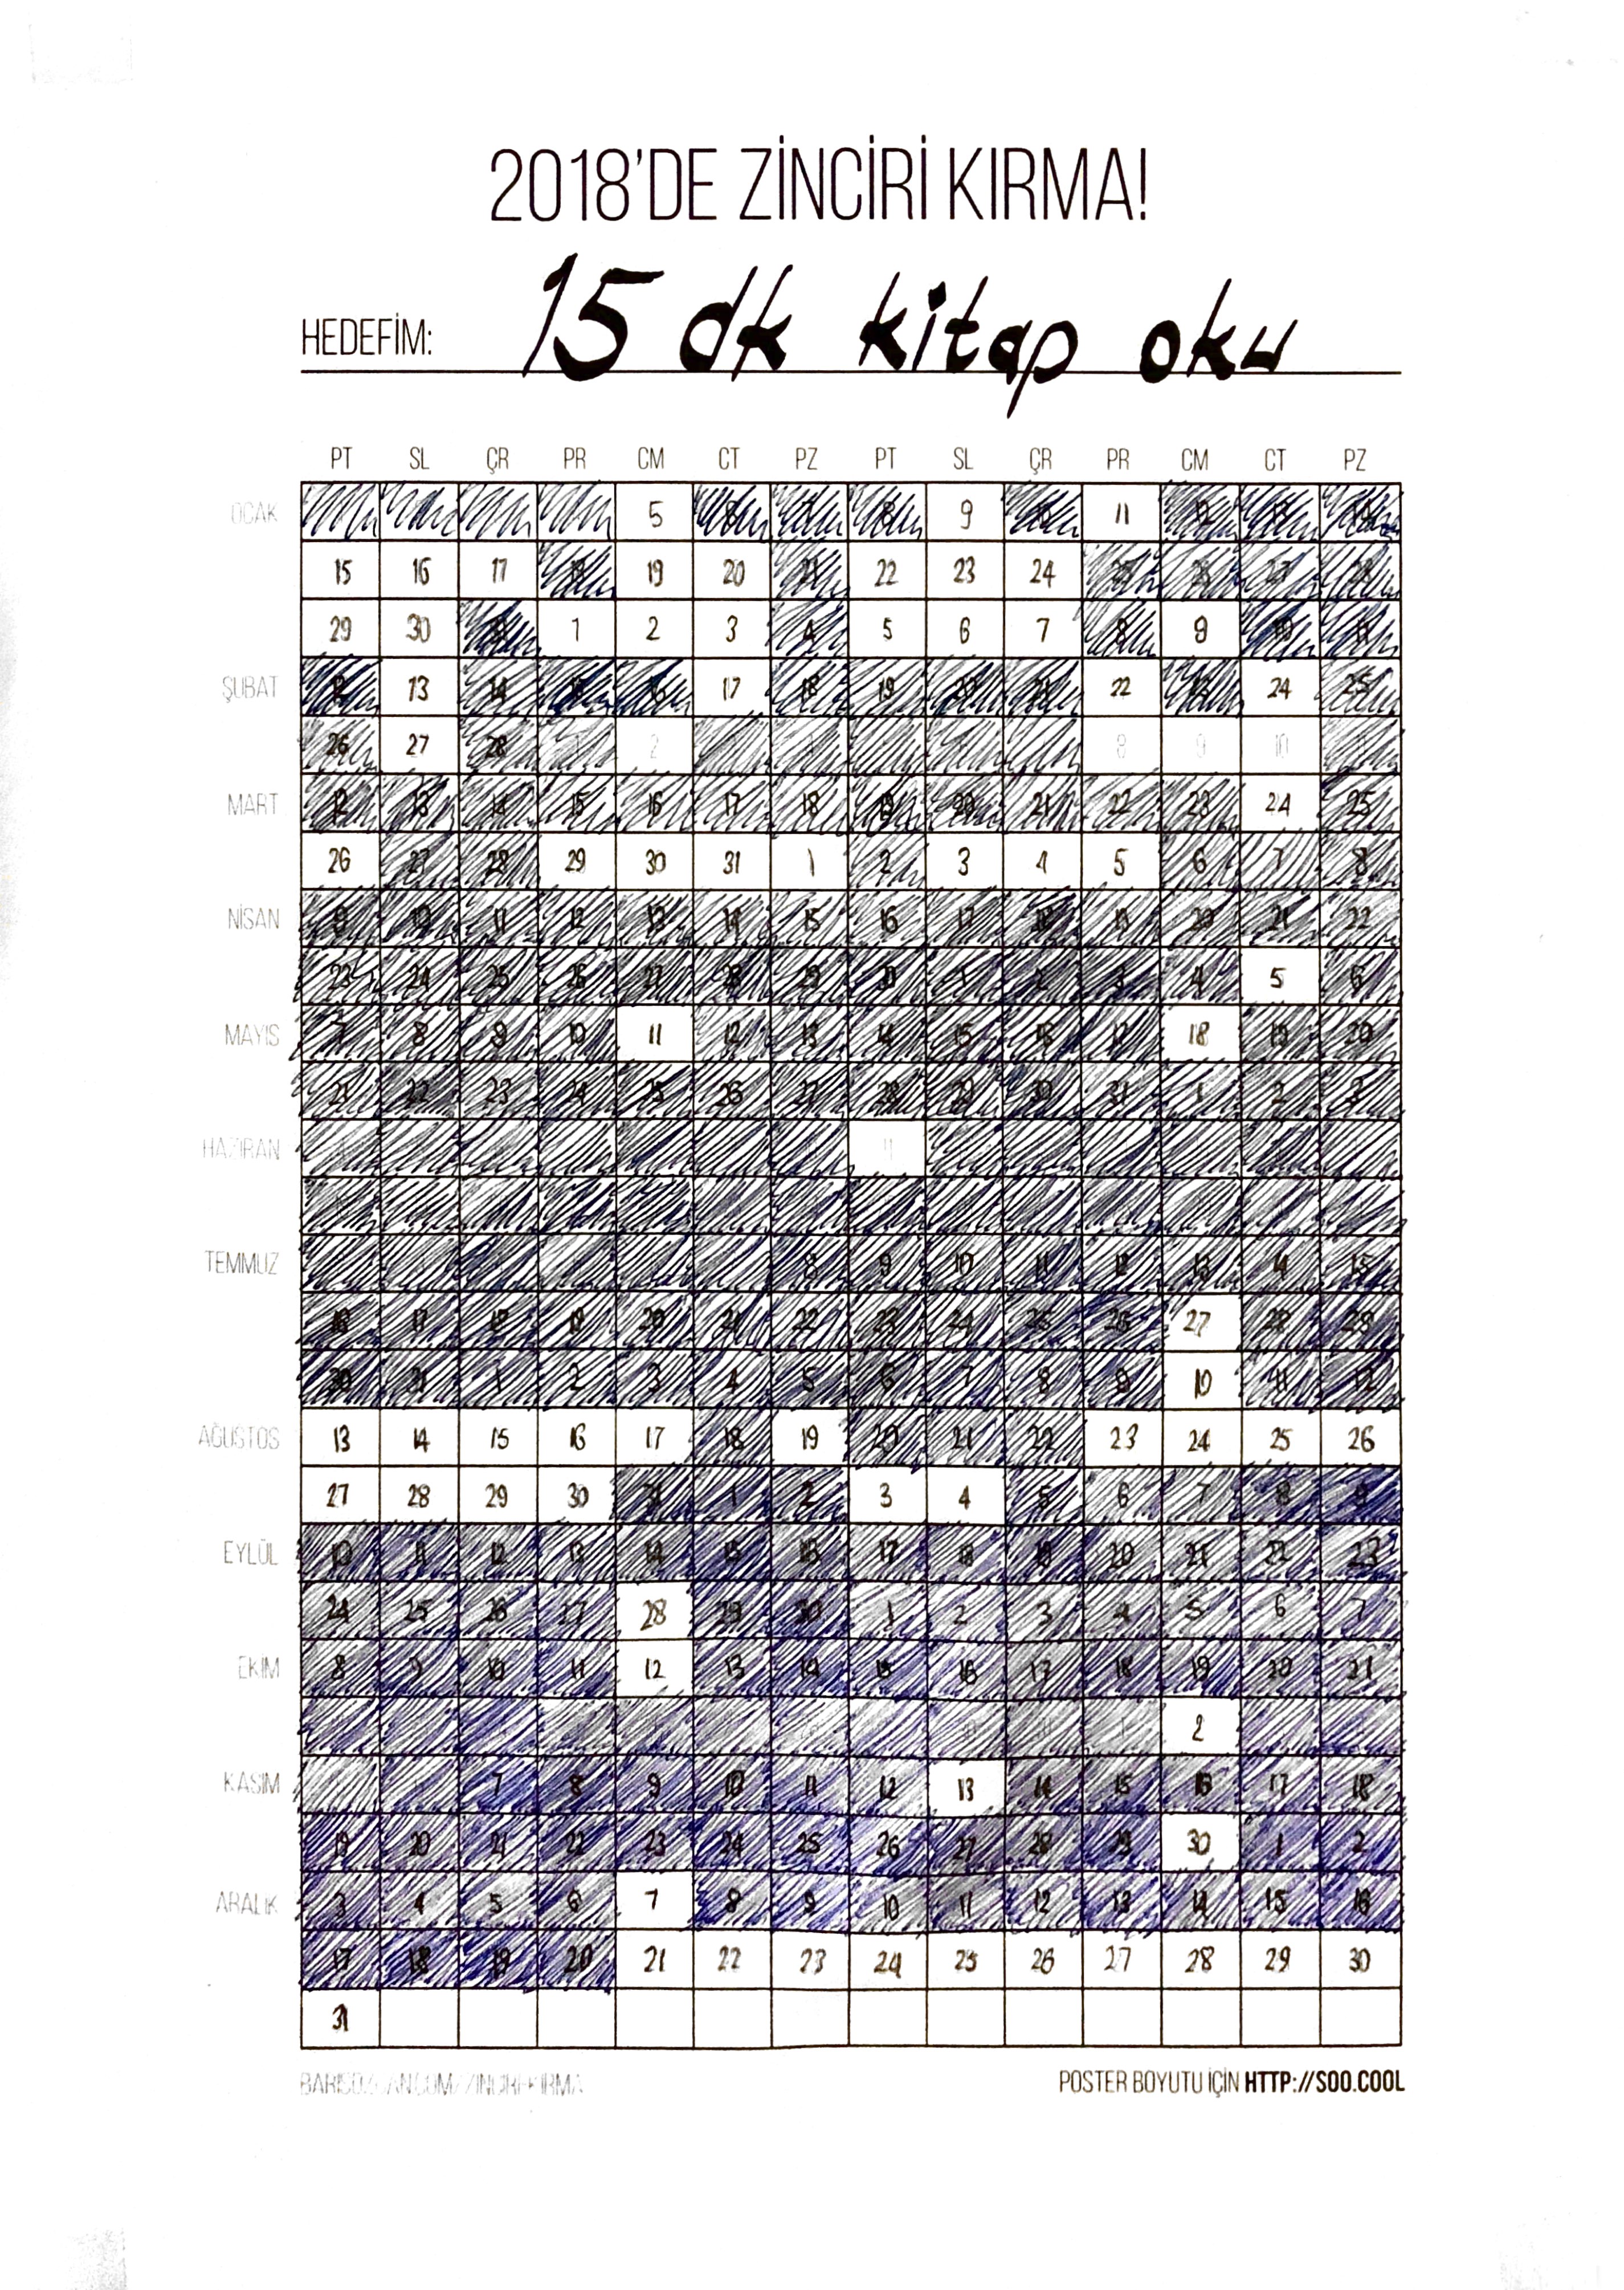 2018'DE ZİNCİRİ KIRMA!
HEDEFİM: 15 dk kitap oku
PT SL ÇR PR CM CT PZ PT SL ÇR PR CM CT PZ
OCAK 5 6 7 8 9 10 11 12 13 14
15 16 17 18 19 20 21 22 23 24 25 26 27 28
29 30 31 1 2 3 4 5 6 7 8 9 10 11
ŞUBAT 12 13 14 15 16 17 18 19 20 21 22 23 24 25
26 27 28 1 2 8 9 10
MART 12 13 14 15 16 17 18 19 20 21 22 23 24 25
26 27 28 29 30 31 1 2 3 4 5 6 7 8
NİSAN 9 10 11 12 13 14 15 16 17 18 19 20 21 22
23 24 25 26 27 28 29 30 1 2 3 4 5 6
MAYIS 7 8 9 10 11 12 13 14 15 16 17 18 19 20
21 22 23 24 25 26 27 28 29 30 31 1 2 3
HAZİRAN 11
TEMMUZ 8 9 10 11 12 13 14 15
16 17 18 19 20 21 22 23 24 25 26 27 28 29
30 31 1 2 3 4 5 6 7 8 9 10 11 12
AĞUSTOS 13 14 15 16 17 18 19 20 21 22 23 24 25 26
27 28 29 30 31 1 2 3 4 5 6 7 8 9
EYLÜL 10 11 12 13 14 15 16 17 18 19 20 21 22 23
24 25 26 27 28 29 30 1 2 3 4 5 6 7
EKİM 8 9 10 11 12 13 14 15 16 17 18 19 20 21
2
KASIM 7 8 9 10 11 12 13 14 15 16 17 18
19 20 21 22 23 24 25 26 27 28 29 30 1 2
ARALIK 3 4 5 6 7 8 9 10 11 12 13 14 15 16
17 18 19 20 21 22 23 24 25 26 27 28 29 30
31
POSTER BOYUTU İÇİN HTTP://SOO.COOL